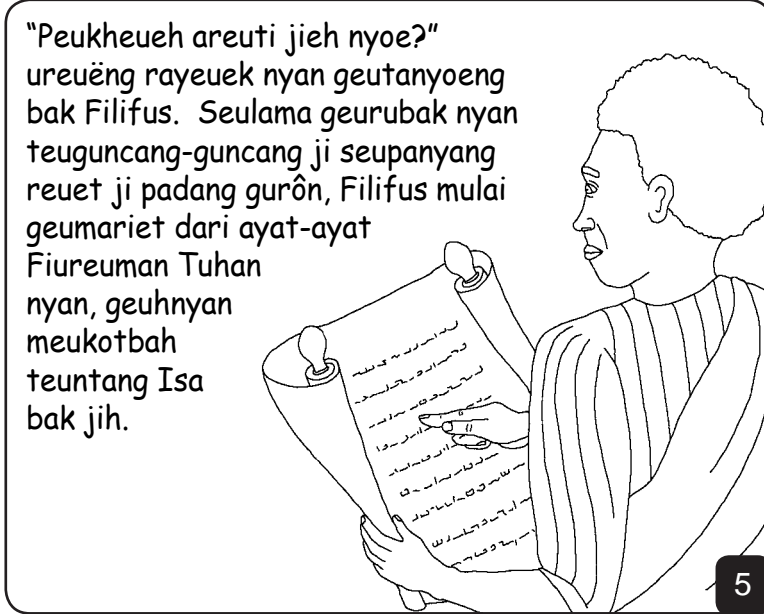 “Peukheueh areuti jieh nyoe?”
ureuëng rayeuek nyan geutanyoeng
bak Filifus.  Seulama geurubak nyan
teuguncang-guncang ji seupanyang
reuet ji padang gurôn, Filifus mulai
geumariet dari ayat-ayat
Fiureuman Tuhan
nyan, geuhnyan
meukotbah
teuntang Isa
bak jih.
5